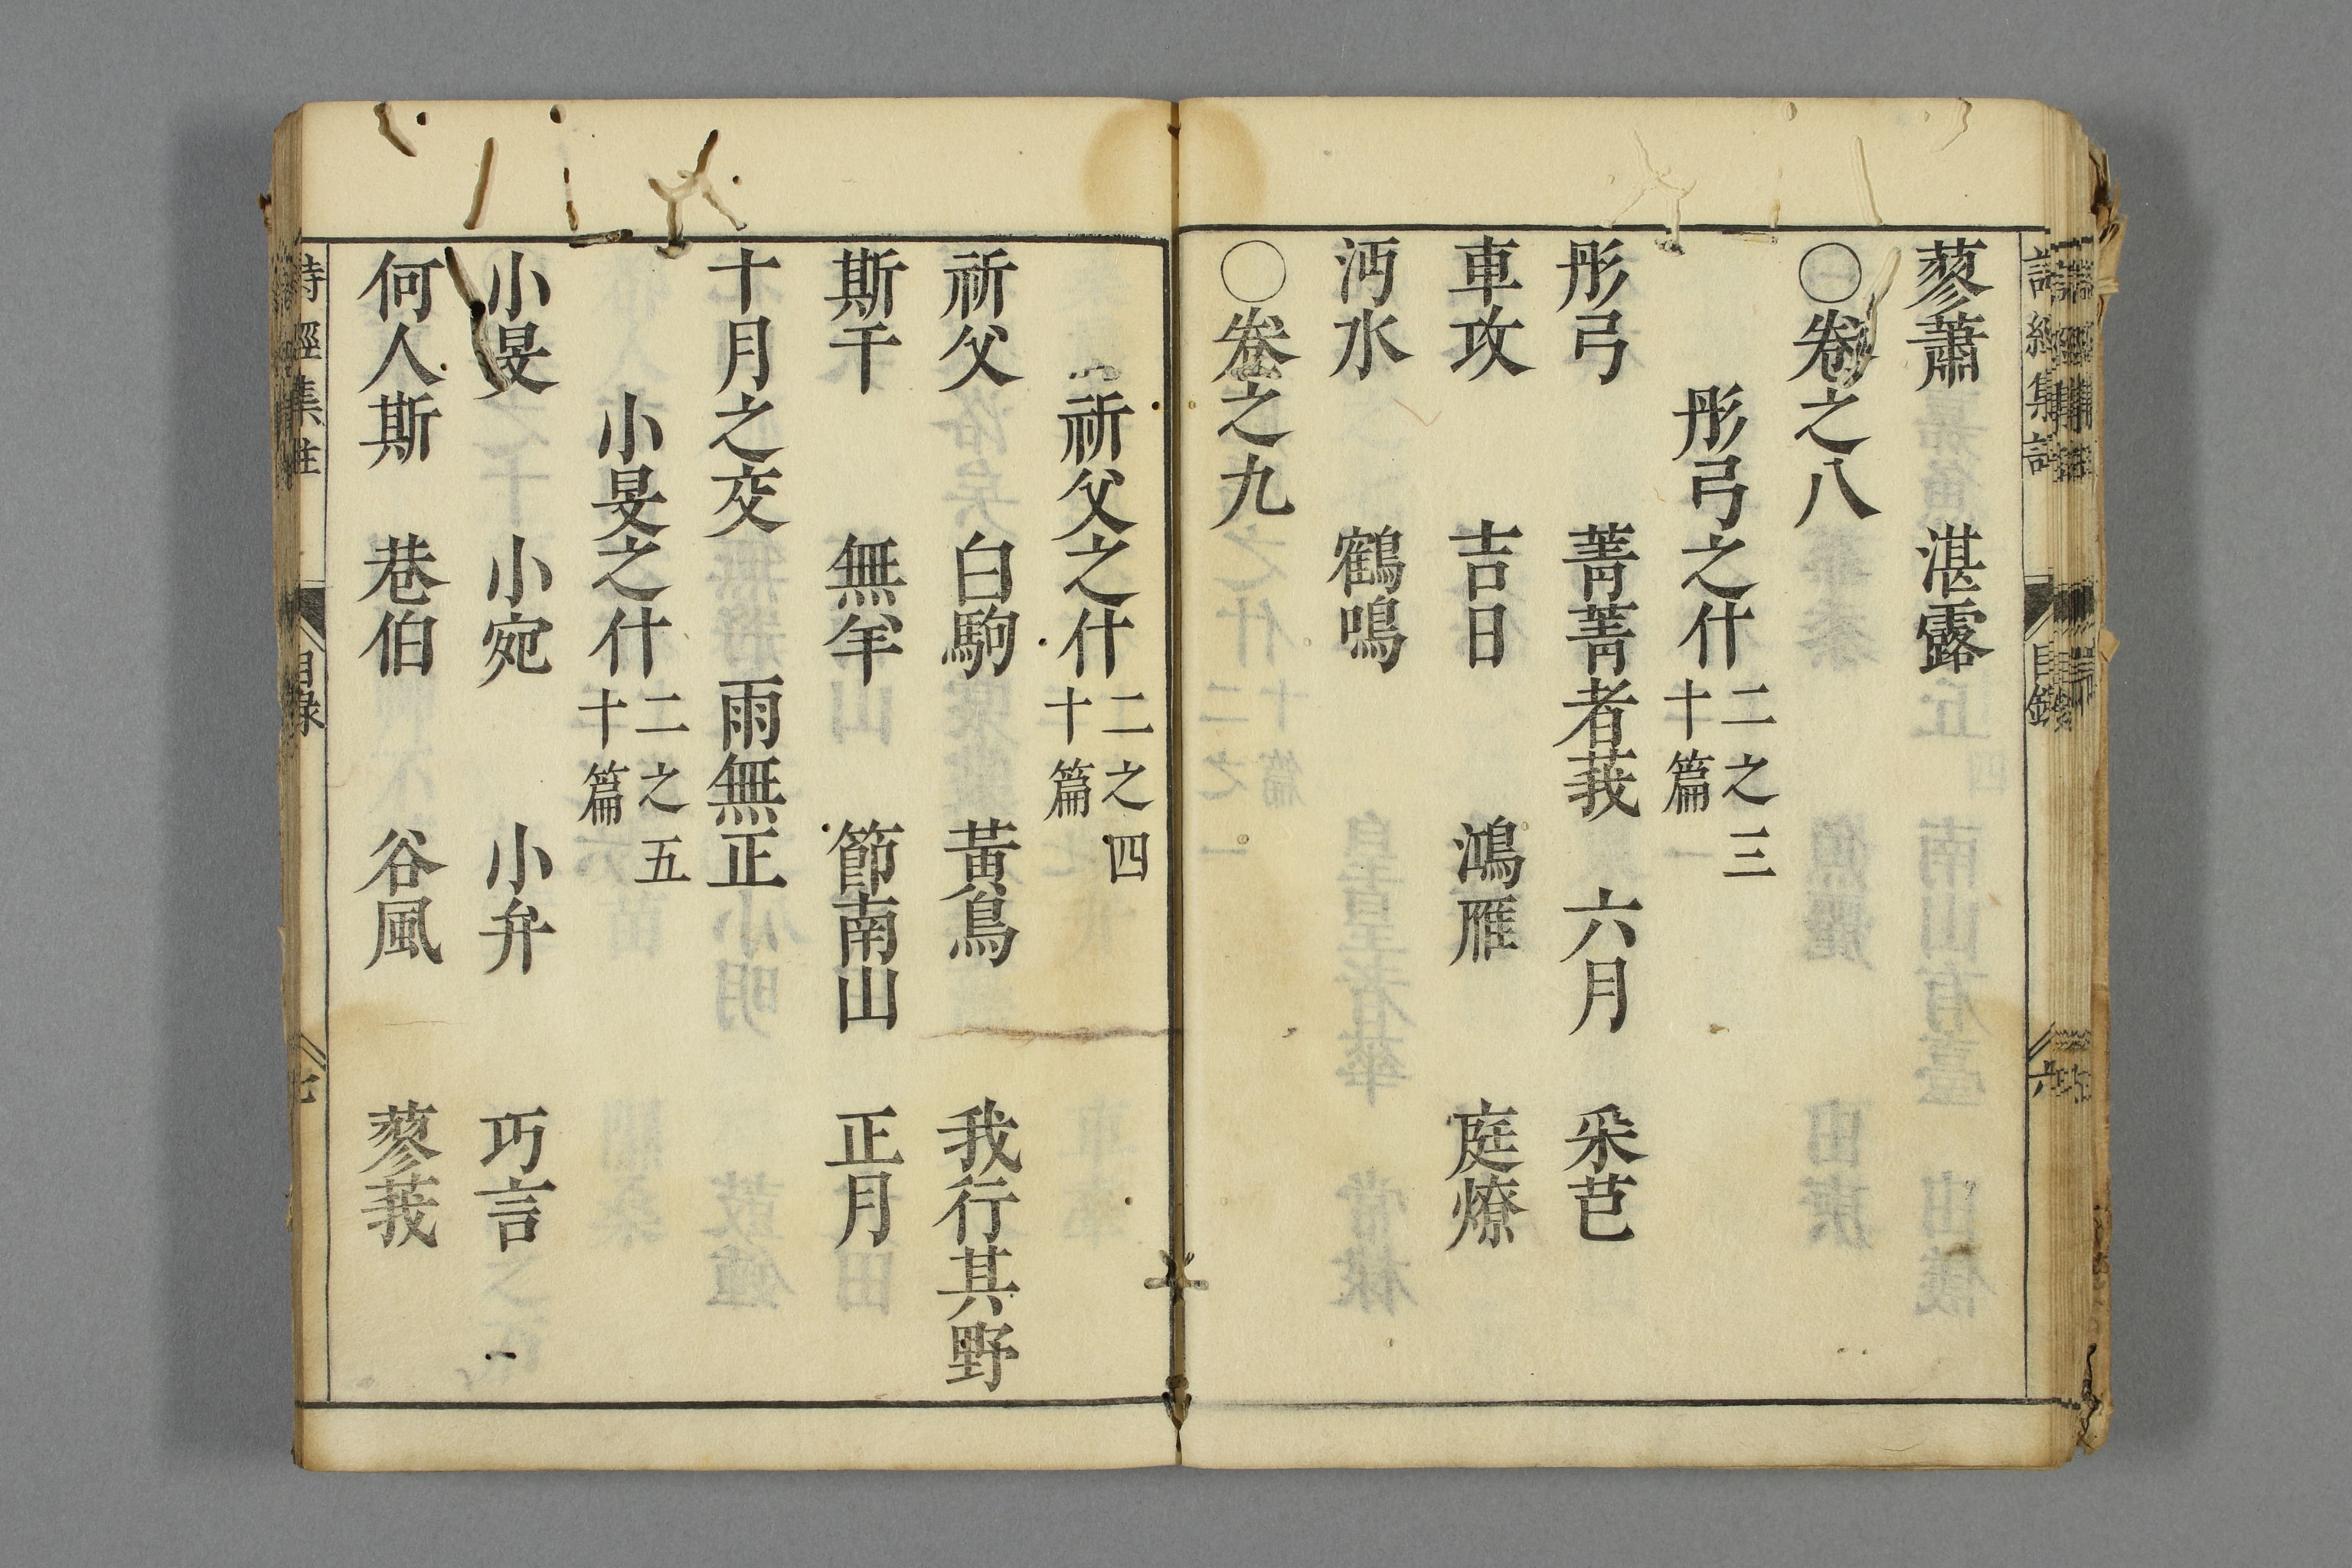 蓼蕭　湛露
〇卷之八
彤弓之什 二之三 十篇
彤弓　菁菁者莪　六月　采芑
車攻　吉日　鴻雁　庭燎
沔水　鶴鳴
〇卷之九
祈父之什 二之四 十篇
祈父　白駒　黃鳥　我行其野
斯干　無羊　節南山　正月
十月之交　雨無正
小旻之什 二之五 十篇
小旻　小宛　小弁　巧言
何人斯　巷伯　谷風　蓼莪
詩經集註　目錄　七